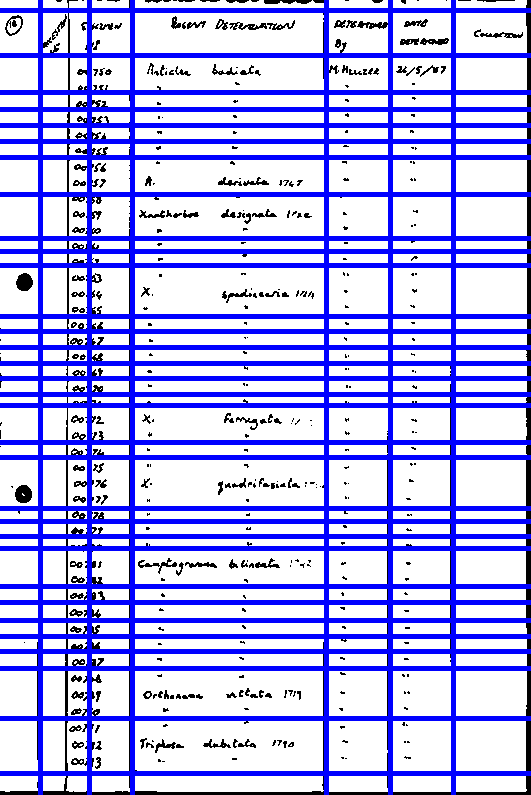 18
RECENT DETERMINATION DETERMINED By DATE DETERMINED COLLECTION
00750 Anticlea badiata 26/5/87
00751 " " " "
00752 " " " "
00753 " " " "
00754 " " " "
00755 " " " "
00756 " " " "
00757 A. derivata 1747 " "
00758
00759 Xanthorhoe designata " "
00760 " " " "
" " " "
" " " "
00763 " " " "
00764 X. spadicearia " "
00765 " " " "
00766 " " " "
00767 " " " "
00768 " " " "
00769 " " " "
00770 " " " "
00772 X. ferrugata " "
00773 " " " "
00774 " " " "
00775 " " " "
00776 X. quadrifasiata " "
00777 " " " "
00778 " " " "
00779 " " " "
" " " "
00781 Camptogramma bilineata " "
00782 " " " "
00783 " " " "
00784 " " " "
00785 " " " "
00786 " " " "
00787 " " " "
00788 " " " "
00789 Orthonama vittata 1719 " "
00790 " " " "
00791 " " " "
00792 Triphosa dubitata 1790 " "
00793 " " " "